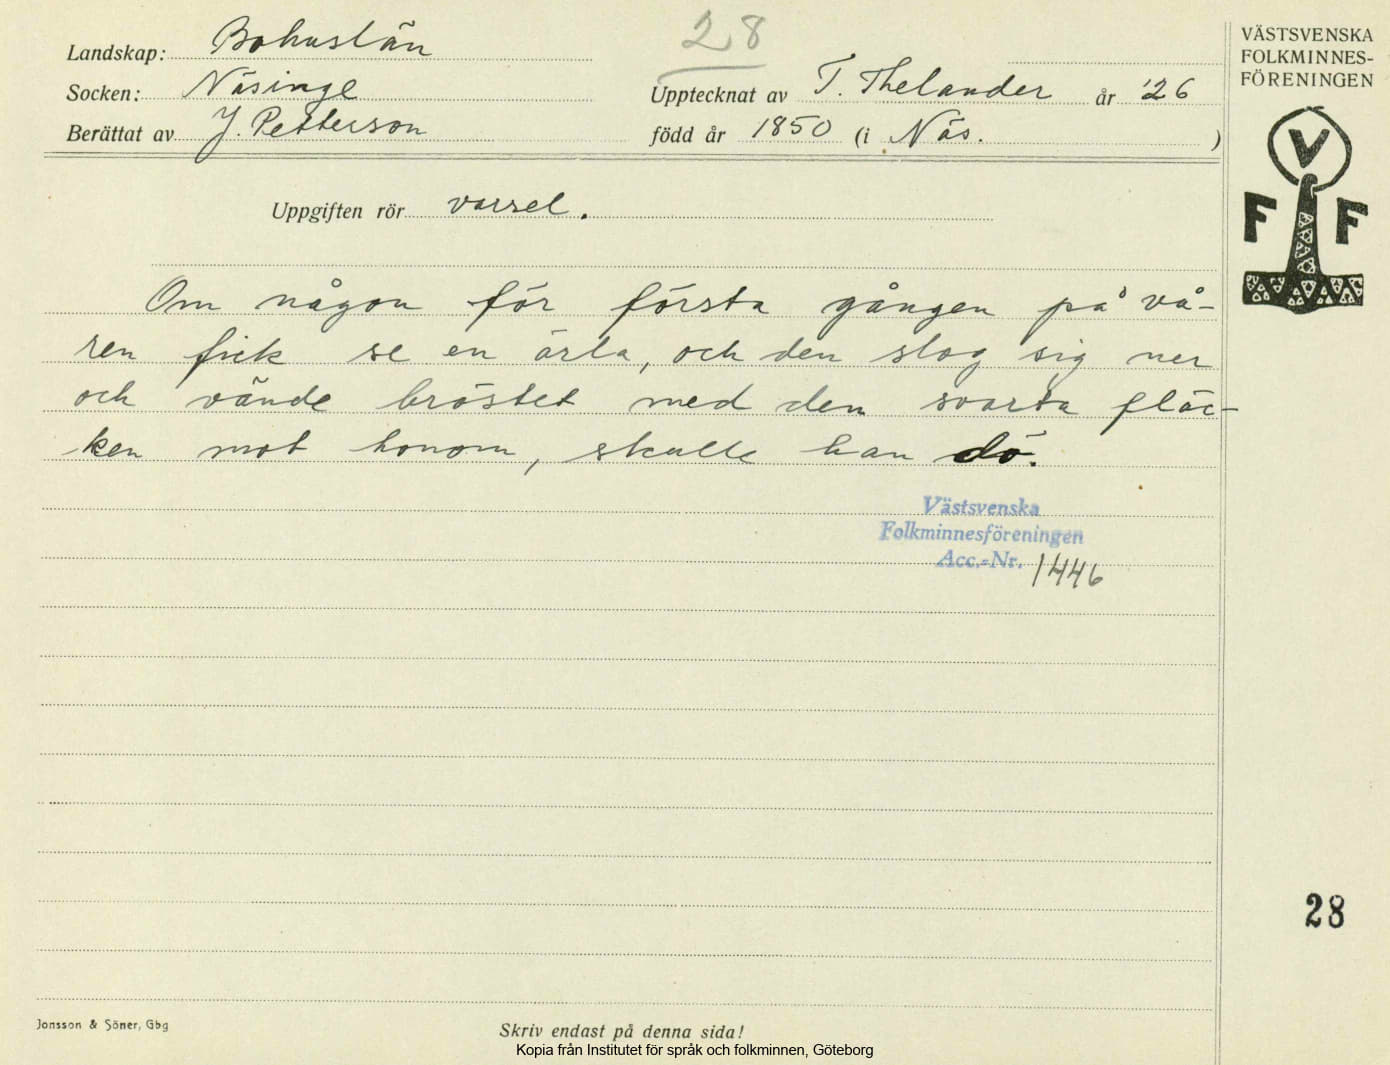 28
Landskap: Bohuslän
Socken: Näsinge
Berättat av J. Petterson
Upptecknat av T. Thelander år '26
född år 1850 (i Näs. )
VÄSTSVENSKA
FOLKMINNES-
FÖRENINGEN
V
F F
Uppgiften rör varsel.
Om någon för första gången på vå-
ren fick se en ärla, och den slog sig ner
och vände bröstet med den svarta fläc-
ken mot honom, skulle han dö.
Västsvenska
Folkminnesföreningen
Acc.-Nr. 1446
28
Jonsson & Söner, Gbg
Skriv endast på denna sida!
Kopia från Institutet för språk och folkminnen, Göteborg